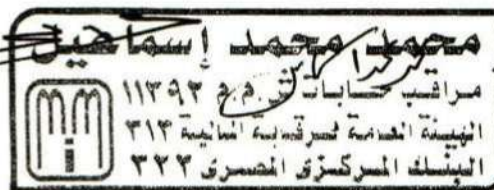 محمد محمد إسماعيل
مراقب حسابات س.م.م ١١٣٩٢
الهيئة العامة للرقابة المالية ٣١٣
البنك المركزى المصرى ٣٢٣